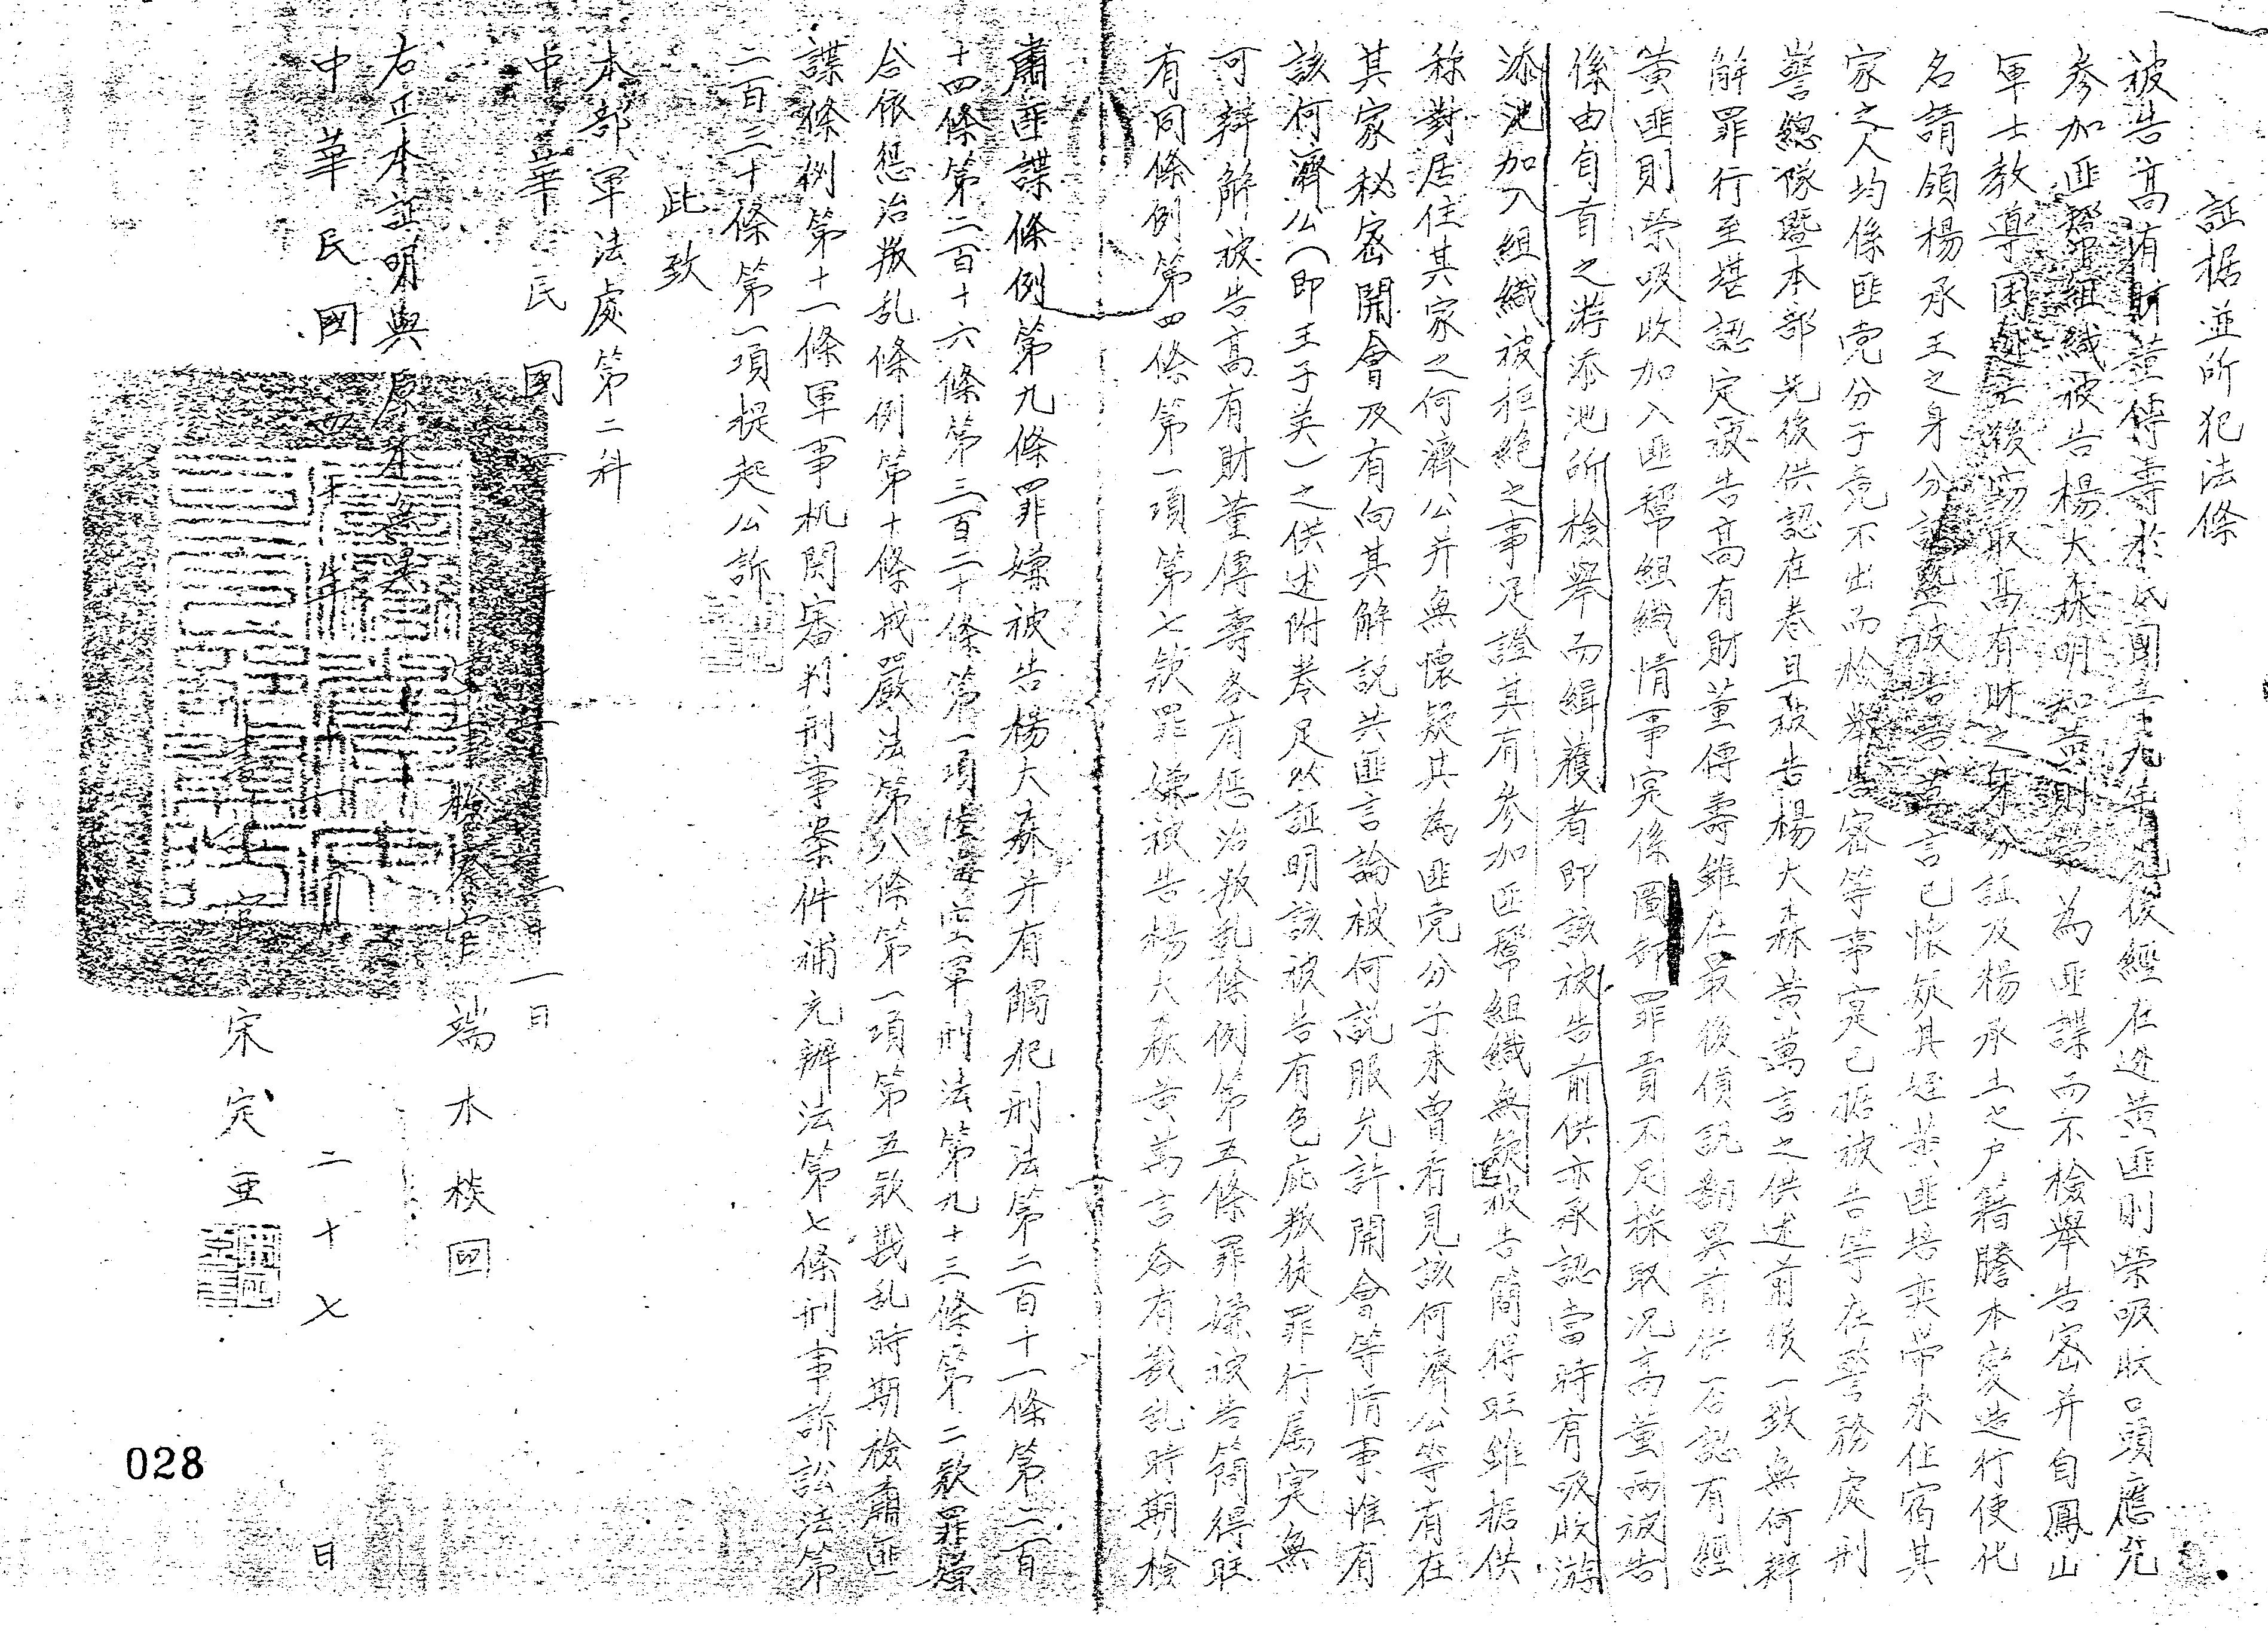 証据並所犯法條
被告高有財董傳壽於民國三十九年先後經在逃黃匪則榮吸收口頭應允
參加匪幫組織被告楊大森明知黃則榮為匪諜而不檢舉告密并自鳳山
軍士教導團逃亡後竊取高有財之身分証及楊承王之戶籍謄本變造行使化
名請領楊承王之身分証被告黃萬言已懷疑其姪黃匪培奕帶來住宿其
家之人均係匪党分子竟不出而檢舉告密等事实已据被告等在警務處刑
警總隊暨本部先後供認在卷且被告楊大森黃萬言之供述前後一致無何辯
解罪行至堪認定被告高有財董傳壽雖在最後偵訊翻異前供否認有經
黃匪則榮吸收加入匪幫組織情事实係圖卸罪責不足採取況高董兩被告
係由自首之游添池所檢舉而緝獲者即該被告前供亦承認當時有吸收游
添池加入組織被拒絕之事足證其有參加匪幫組織無疑被告簡得旺雖据供
称對居住其家之何濟公并無懷疑其為匪党分子未曾有見該何濟公等有在
其家秘密開會及有向其解説共匪言論被何説服允許開會等情事惟有
該何濟公（即王子英）之供述附卷足以証明該被告有包庇叛徒罪行属实無
可辯解被告高有財董傳壽各有惩治叛乱條例第五條罪嫌被告簡得旺
有同條例第四條第一項第七款罪嫌被告楊大森黃萬言各有戡乱時期檢
肅匪諜條例第九條罪嫌被告楊大森并有觸犯刑法第二百十一條第二百
十四條第二百十六條第三百二十條第一項陸海空軍刑法第九十三條第二款罪嫌
合依惩治叛乱條例第十條戒嚴法第八條第一項第五款戡乱時期檢肅匪
諜條例第十一條軍事机関審判刑事案件補充辦法第七條刑事訴訟法第
二百三十條第一項提起公訴
此致
本部軍法處第二科
中華民國 一日
軍事檢察官端木棪 印
右正本証明與原本無異
中華民國四十年 二十七日
書記官宋定亜
028